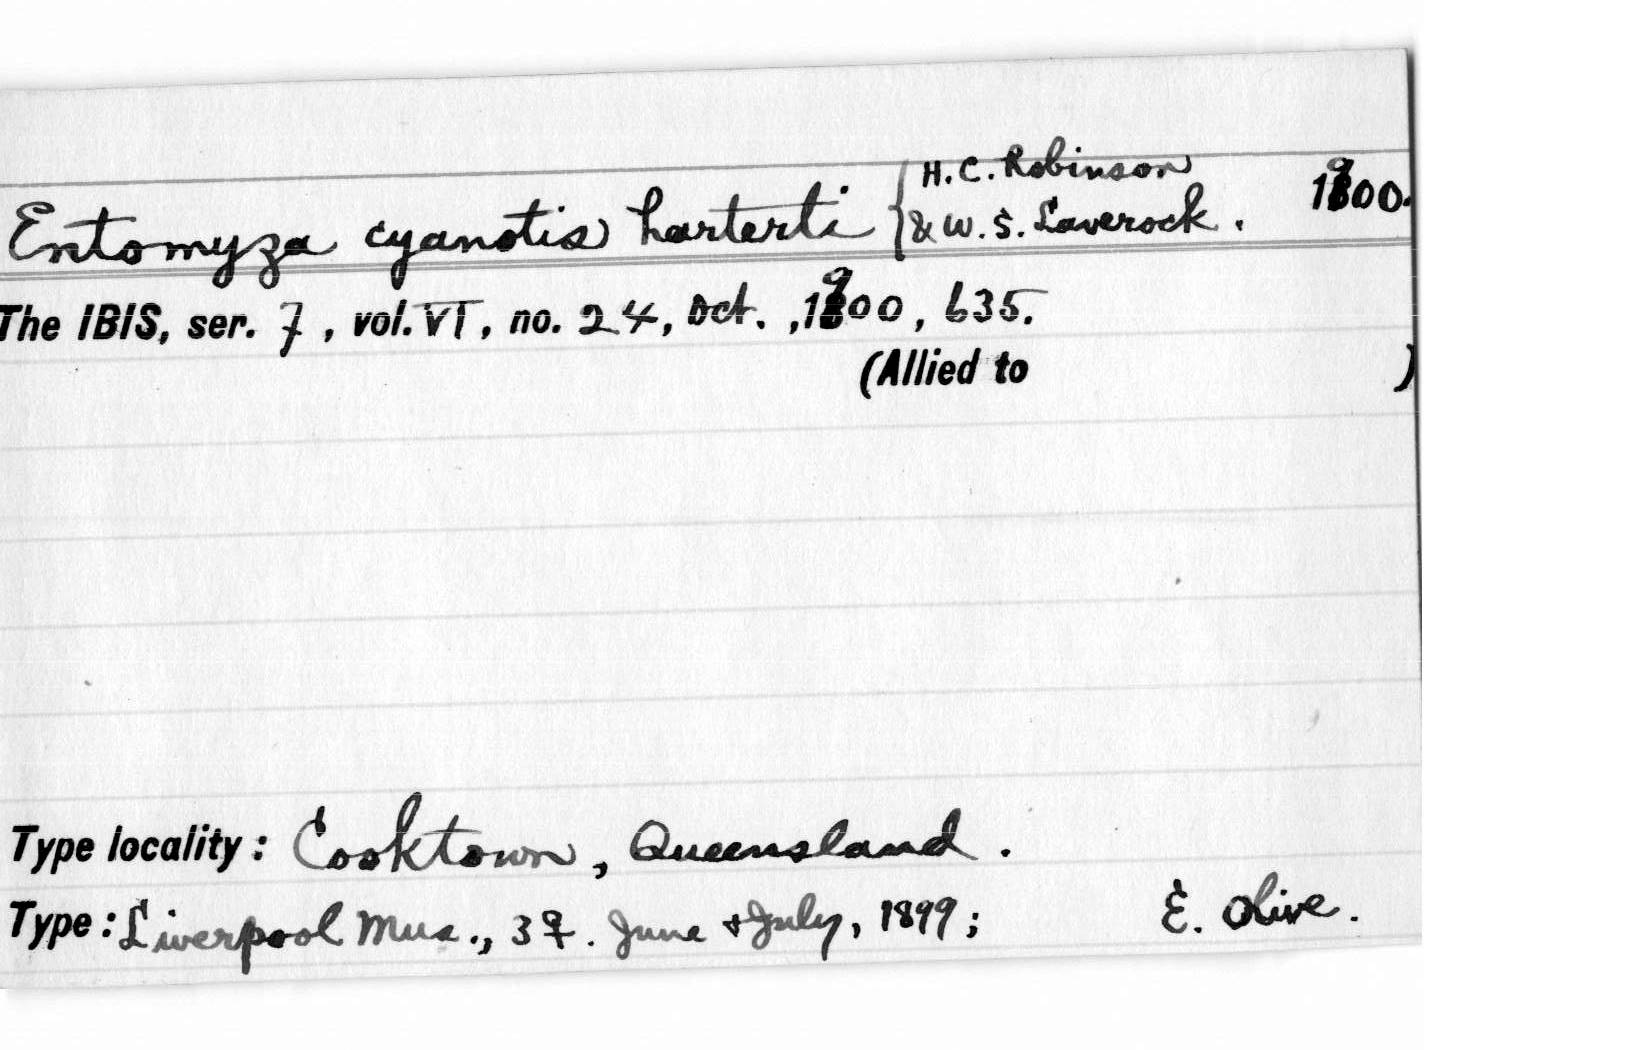 H. C. Robinson
Entomyza cyanotis harterti { & W. S. Laverock. 1900.
The IBIS, ser. 7, vol. VI, no. 24, Oct., 1900, 635.
(Allied to )
Type locality: Cooktown, Queensland.
Type: Liverpool Mus., 3♀. June + July, 1899; E. Olive.